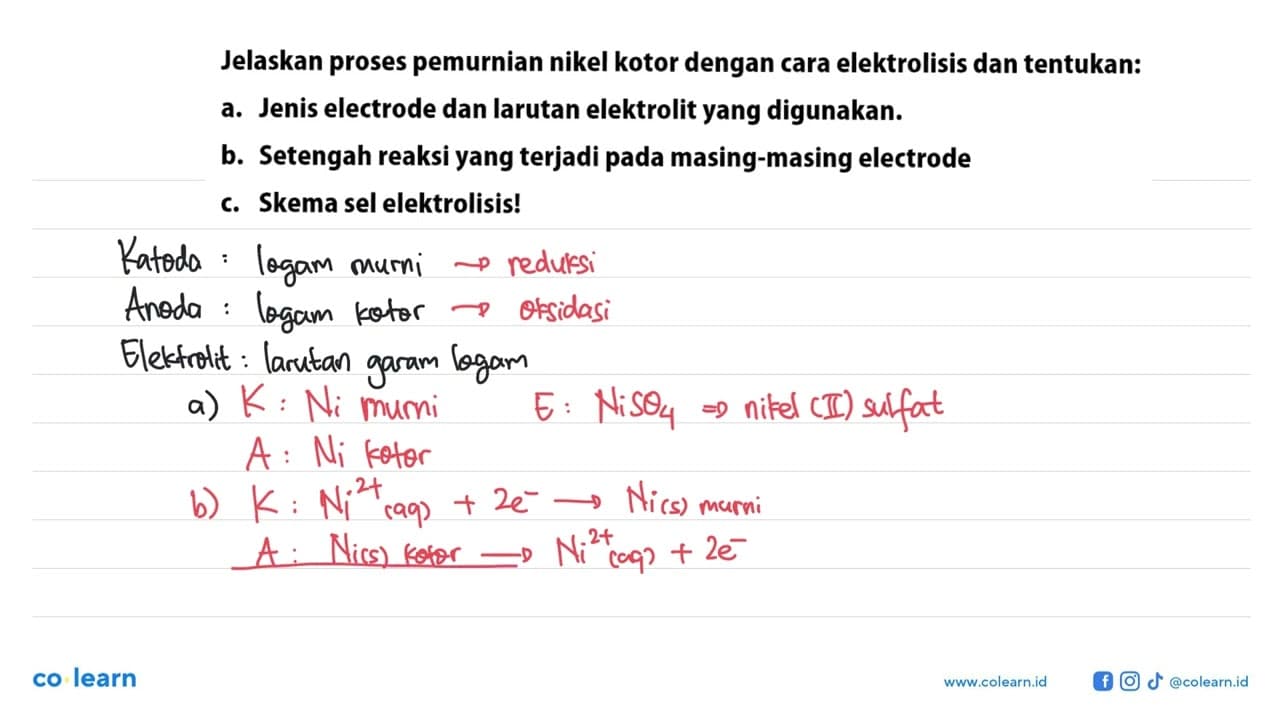 Jelaskan proses pemurnian nikel kotor dengan cara elektrolisis dan tentukan:
a. Jenis electrode dan larutan elektrolit yang digunakan.
b. Setengah reaksi yang terjadi pada masing-masing electrode
c. Skema sel elektrolisis!
Katoda : logam murni → reduksi
Anoda : logam kotor → oksidasi
Elektrolit : larutan garam logam
a) K : Ni murni E : NiSO₄ ⇒ nikel (II) sulfat
A : Ni kotor
b) K : Ni²⁺(aq) + 2e⁻ → Ni(s) murni
A : Ni(s) kotor → Ni²⁺(aq) + 2e⁻
co learn
www.colearn.id @colearn.id